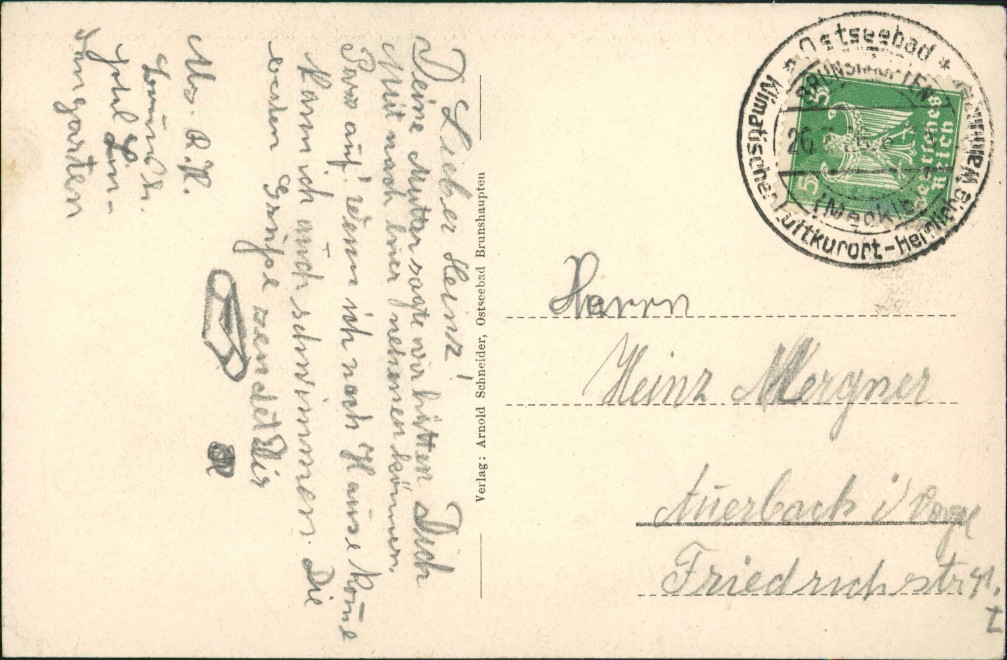 Lieber Heinz!
Deine Mutter sagte wir hätten Dich
mit nach hier nehmen können.
Pass auf! wenn ich nach Hause kome
kann ich auch schwimmen. Die
besten Grüße sendet Dir
Abs. R. K.
z.
Hotel Lin-
dengarten
Verlag: Arnold Schneider, Ostseebad Brunshaupten
* Ostseebad *
BRUNSHAUPTEN
26.
(Meckl)
Klimatischer Luftkurort-Herrliche Waldungen
5
5
Deutsches
Reich
Herrn
Heinz Mergner
Auerbach i/Vogt
Friedrichstr.